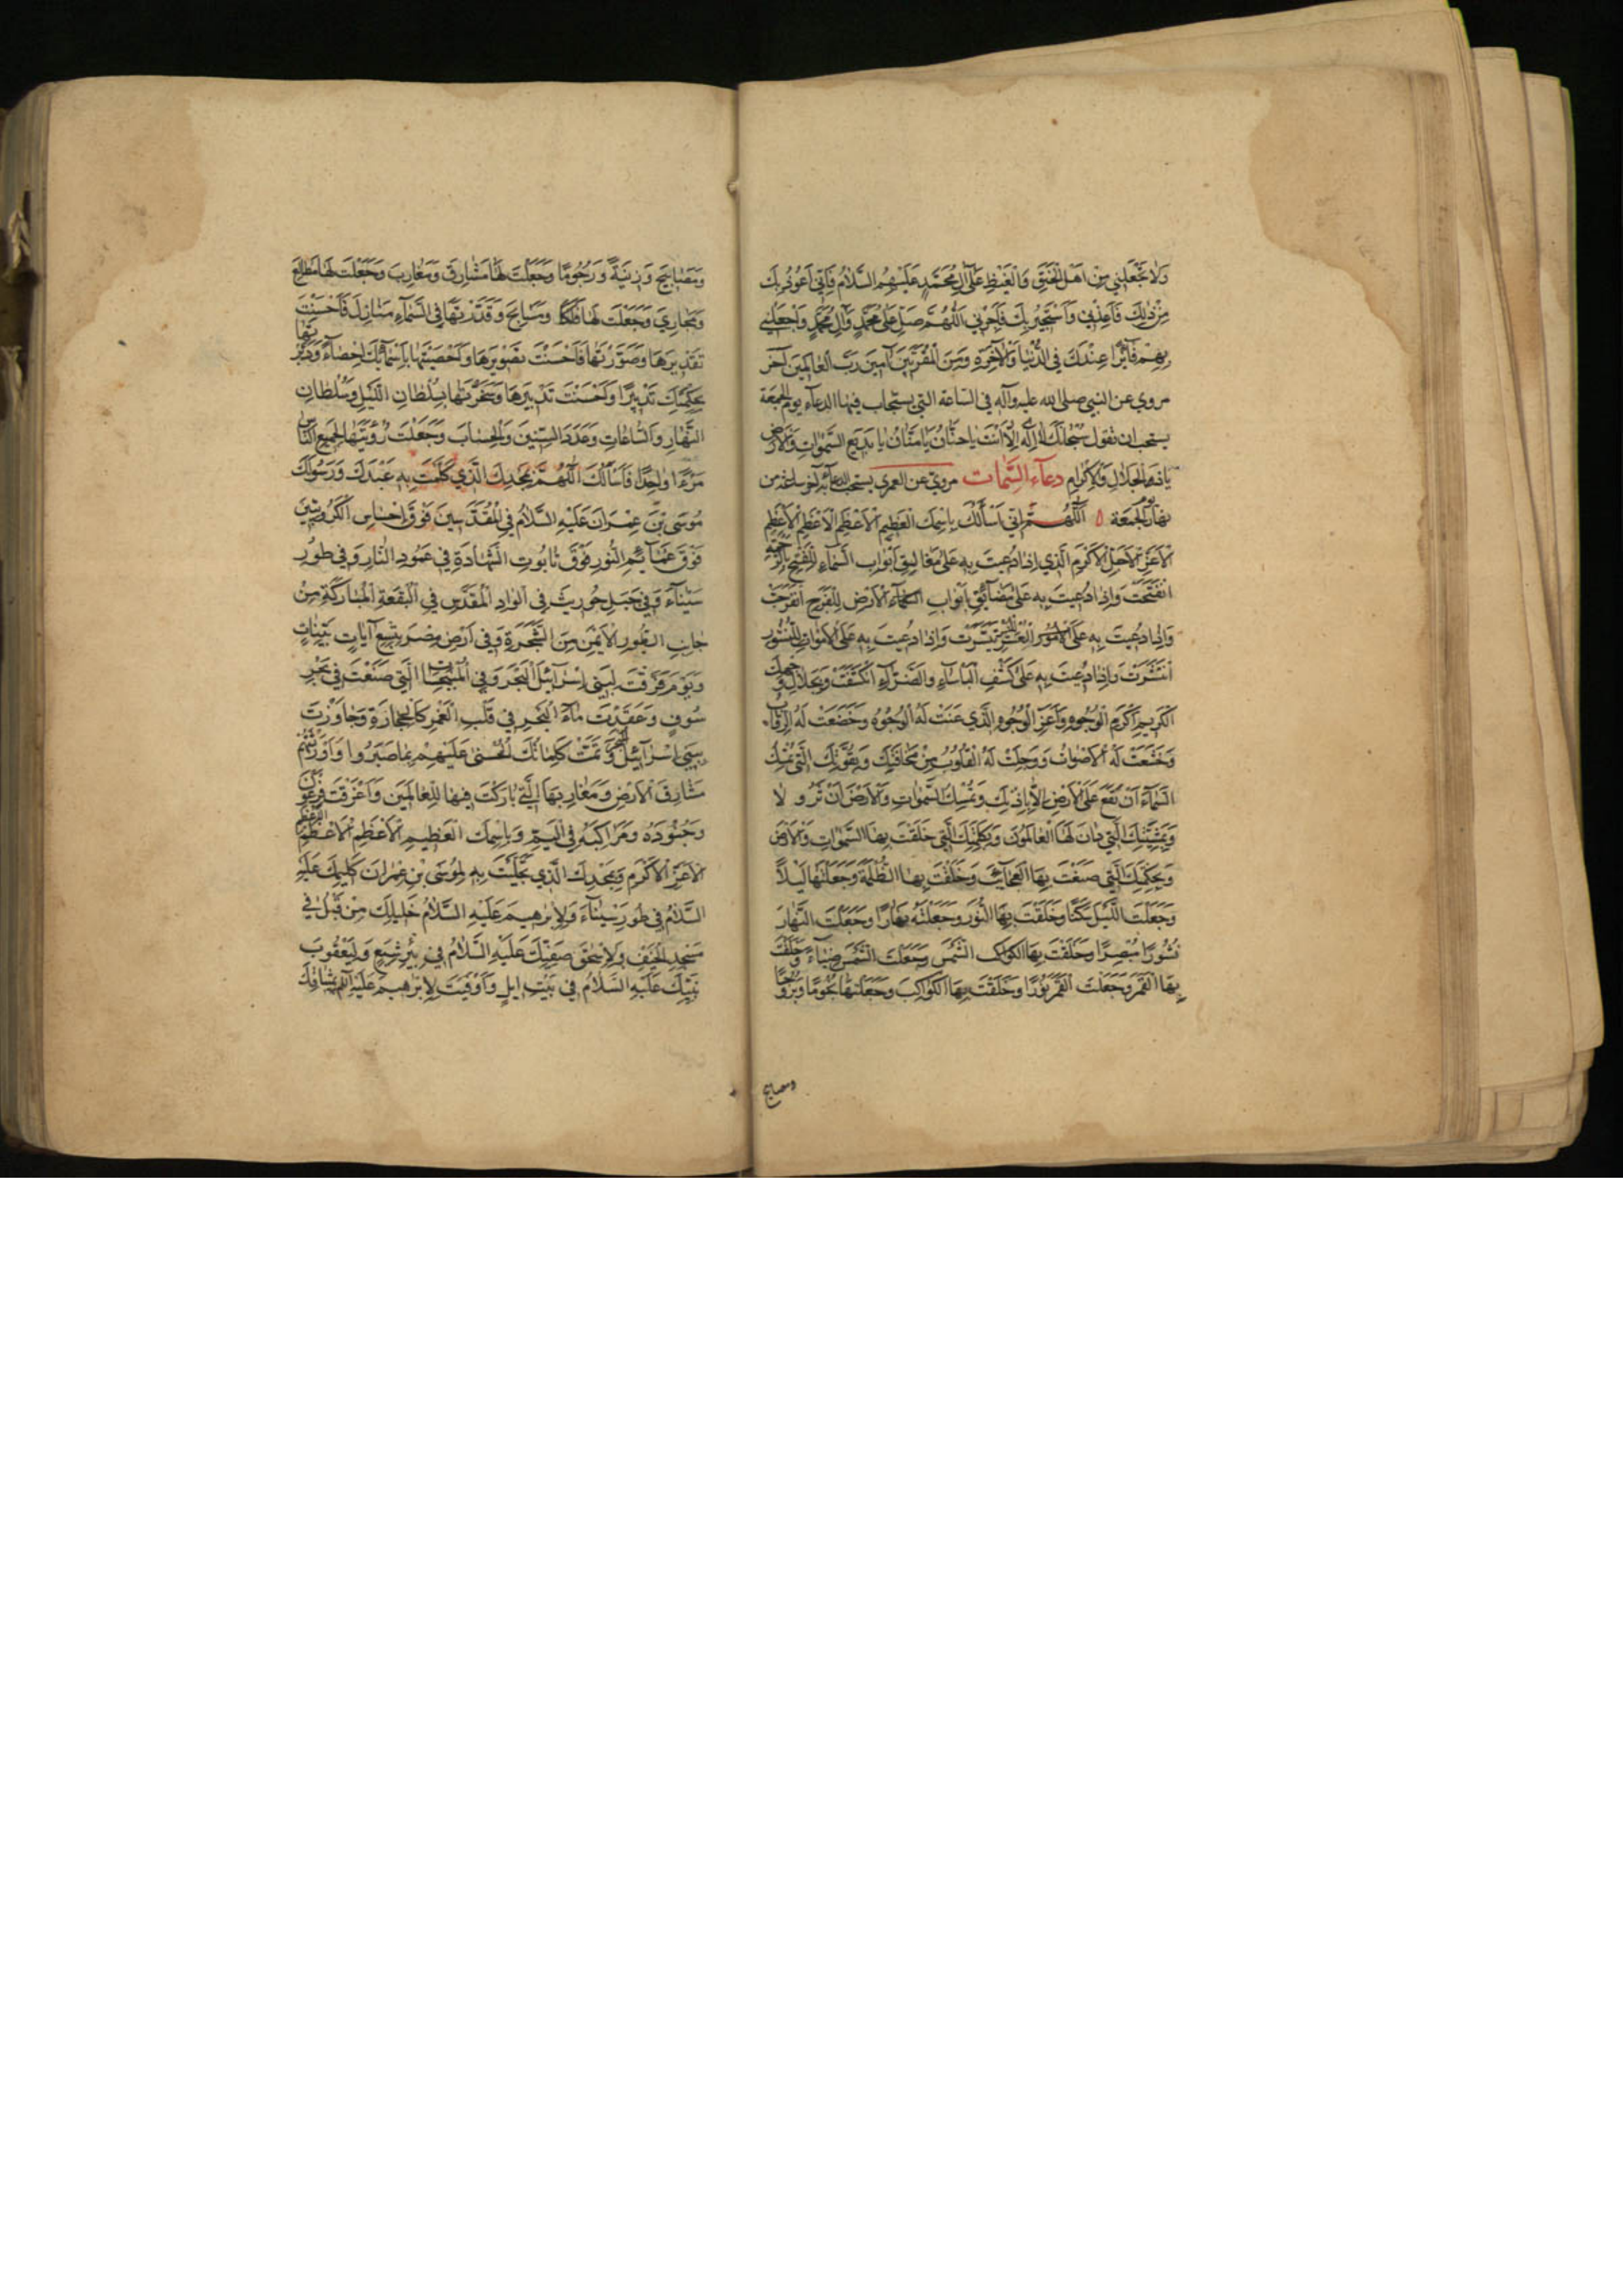 وَلَا تَجْعَلْنِي مِنْ اَهْلِ الْحَنَقِ وَالْغَيْظِ عَلٰى آلِ مُحَمَّدٍ عَلَيْهِمُ السَّلَامُ فَاِنِّي اَعُوذُ بِكَ
مِنْ ذٰلِكَ فَاَعِذْنِي وَاَسْتَجِيرُ بِكَ فَاَجِرْنِي اَللّٰهُمَّ صَلِّ عَلٰى مُحَمَّدٍ وَآلِ مُحَمَّدٍ وَاجْعَلْنِي
بِهِمْ فَآئِزًا عِنْدَكَ فِي الدُّنْيَا وَالْآخِرَةِ وَمِنَ الْمُقَرَّبِينَ آمِينَ رَبَّ الْعَالَمِينَ آخر
مروي عن النبي صلى الله عليه وآله في الساعة التي يستجاب فيها الدعآء يوم الجمعة
يستحب ان تقول سُبْحَانَكَ لَا اِلٰهَ اِلَّا اَنْتَ يَا حَنَّانُ يَا مَنَّانُ يَا بَدِيعَ السَّمٰوَاتِ وَالْاَرْضِ
يَا ذَا الْجَلَالِ وَالْاِكْرَامِ دعآء السِّمَات مروي عن العمري يستحب الدعآء به آخر ساعة من
نهار يوم الجمعة ه اَللّٰهُمَّ اِنِّي اَسْاَلُكَ بِاسْمِكَ الْعَظِيمِ الْاَعْظَمِ الْاَعْظَمِ الْاَعْظَمِ
الْاَعَزِّ الْاَجَلِّ الْاَكْرَمِ الَّذِي اِذَا دُعِيتَ بِهِ عَلٰى مَغَالِقِ اَبْوَابِ السَّمَاءِ لِلْفَتْحِ بِالرَّحْمَةِ
انْفَتَحَتْ وَاِذَا دُعِيتَ بِهِ عَلٰى مَضَآئِقِ اَبْوَابِ الْاَرْضِ لِلْفَرَجِ انْفَرَجَتْ
وَاِذَا دُعِيتَ بِهِ عَلَى الْعُسْرِ لِلْيُسْرِ تَيَسَّرَتْ وَاِذَا دُعِيتَ بِهِ عَلَى الْاَمْوَاتِ لِلنُّشُورِ
انْتَشَرَتْ وَاِذَا دُعِيتَ بِهِ عَلٰى كَشْفِ الْبَاْسَآءِ وَالضَّرَّآءِ انْكَشَفَتْ وَبِجَلَالِ وَجْهِكَ
الْكَرِيمِ اَكْرَمِ الْوُجُوهِ وَاَعَزِّ الْوُجُوهِ الَّذِي عَنَتْ لَهُ الْوُجُوهُ وَخَضَعَتْ لَهُ الرِّقَابُ
وَخَشَعَتْ لَهُ الْاَصْوَاتُ وَوَجِلَتْ لَهُ الْقُلُوبُ مِنْ مَخَافَتِكَ وَبِقُوَّتِكَ الَّتِي تُمْسِكُ
السَّمَآءَ اَنْ تَقَعَ عَلَى الْاَرْضِ اِلَّا بِاِذْنِكَ وَتُمْسِكُ السَّمٰوَاتِ وَالْاَرْضَ اَنْ تَزُولَا
وَبِمَشِيَّتِكَ الَّتِي دَانَ لَهَا الْعَالَمُونَ وَبِكَلِمَتِكَ الَّتِي خَلَقْتَ بِهَا السَّمٰوَاتِ وَالْاَرْضَ
وَبِحِكْمَتِكَ الَّتِي صَنَعْتَ بِهَا الْعَجَآئِبَ وَخَلَقْتَ بِهَا الظُّلْمَةَ وَجَعَلْتَهَا لَيْلًا
وَجَعَلْتَ اللَّيْلَ سَكَنًا وَخَلَقْتَ بِهَا النُّورَ وَجَعَلْتَهُ نَهَارًا وَجَعَلْتَ النَّهَارَ
نُشُورًا مُبْصِرًا وَخَلَقْتَ بِهَا الشَّمْسَ وَجَعَلْتَ الشَّمْسَ ضِيَآءً وَخَلَقْتَ
بِهَا الْقَمَرَ وَجَعَلْتَ الْقَمَرَ نُورًا وَخَلَقْتَ بِهَا الْكَوَاكِبَ وَجَعَلْتَهَا نُجُومًا وَبُرُوجًا
ومصابيح
وَمَصَابِيحَ وَزِينَةً وَرُجُومًا وَجَعَلْتَ لَهَا مَشَارِقَ وَمَغَارِبَ وَجَعَلْتَ لَهَا مَطَالِعَ
وَمَجَارِيَ وَجَعَلْتَ لَهَا فَلَكًا وَمَسَابِحَ وَقَدَّرْتَهَا فِي السَّمَآءِ مَنَازِلَ فَاَحْسَنْتَ
تَقْدِيرَهَا وَصَوَّرْتَهَا فَاَحْسَنْتَ تَصْوِيرَهَا وَاَحْصَيْتَهَا بِاَسْمَآئِكَ اِحْصَآءً وَدَبَّرْتَهَا
بِحِكْمَتِكَ تَدْبِيرًا وَاَحْسَنْتَ تَدْبِيرَهَا وَسَخَّرْتَهَا بِسُلْطَانِ اللَّيْلِ وَسُلْطَانِ
النَّهَارِ وَالسَّاعَاتِ وَعَدَدَ السِّنِينَ وَالْحِسَابَ وَجَعَلْتَ رُؤْيَتَهَا لِجَمِيعِ النَّاسِ
مَرْءًا وَاحِدًا فَاَسْاَلُكَ اللّٰهُمَّ بِمَجْدِكَ الَّذِي كَلَّمْتَ بِهِ عَبْدَكَ وَرَسُولَكَ
مُوسَى بْنَ عِمْرَانَ عَلَيْهِ السَّلَامُ فِي الْمُقَدَّسِينَ فَوْقَ اِحْسَاسِ الْكَرُوبِيِّينَ
فَوْقَ غَمَآئِمِ النُّورِ فَوْقَ تَابُوتِ الشَّهَادَةِ فِي عَمُودِ النَّارِ وَفِي طُورِ
سَيْنَآءَ وَفِي جَبَلِ حُورِيثَ فِي الْوَادِ الْمُقَدَّسِ فِي الْبُقْعَةِ الْمُبَارَكَةِ مِنْ
جَانِبِ الطُّورِ الْاَيْمَنِ مِنَ الشَّجَرَةِ وَفِي اَرْضِ مِصْرَ بِتِسْعِ آيَاتٍ بَيِّنَاتٍ
وَيَوْمَ فَرَقْتَ لِبَنِي اِسْرَآئِيلَ الْبَحْرَ وَفِي الْمُنْبَجِسَاتِ الَّتِي صَنَعْتَ فِي بَحْرِ
سُوفٍ وَعَقَدْتَ مَآءَ الْبَحْرِ فِي قَلْبِ الْغَمْرِ كَالْحِجَارَةِ وَجَاوَزْتَ
بِبَنِي اِسْرَآئِيلَ الْبَحْرَ وَتَمَّتْ كَلِمَاتُكَ الْحُسْنٰى عَلَيْهِمْ بِمَا صَبَرُوا وَاَوْرَثْتَهُمْ
مَشَارِقَ الْاَرْضِ وَمَغَارِبَهَا الَّتِي بَارَكْتَ فِيهَا لِلْعَالَمِينَ وَاَغْرَقْتَ فِرْعَوْنَ
وَجُنُودَهُ وَمَرَاكِبَهُ فِي الْيَمِّ وَبِاسْمِكَ الْعَظِيمِ الْاَعْظَمِ الْاَعْظَمِ الْاَعْظَمِ
الْاَعَزِّ الْاَكْرَمِ وَبِمَجْدِكَ الَّذِي تَجَلَّيْتَ بِهِ لِمُوسَى بْنِ عِمْرَانَ كَلِيمِكَ عَلَيْهِ
السَّلَامُ فِي طُورِ سَيْنَآءَ وَلِاِبْرٰهِيمَ عَلَيْهِ السَّلَامُ خَلِيلِكَ مِنْ قَبْلُ فِي
مَسْجِدِ الْخَيْفِ وَلِاِسْحٰقَ صَفِيِّكَ عَلَيْهِ السَّلَامُ فِي بِئْرِ شِيَعٍ وَلِيَعْقُوبَ
نَبِيِّكَ عَلَيْهِ السَّلَامُ فِي بَيْتِ اِيلٍ وَاَوْفَيْتَ لِاِبْرٰهِيمَ عَلَيْهِ السَّلَامُ بِمِيثَاقِكَ